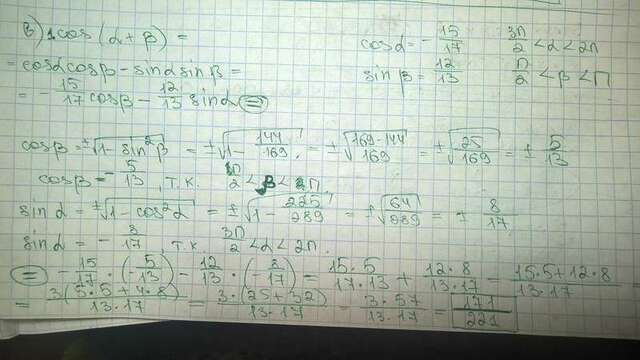 в) 1 cos (α + β) =
cosα = - 15/17   3π/2 < α < 2π
= cosα cosβ - sinα sinβ =
sin β = 12/13   π/2 < β < π
= - 15/17 cosβ - 12/13 sinα =
cosβ = ±√(1 - sin²β) = ±√(1 - 144/169) = ±√((169-144)/169) = ±√(25/169) = ± 5/13
cosβ = - 5/13, т.к. π/2 < β < π.
sin α = ±√(1 - cos²α) = ±√(1 - 225/289) = ±√(64/289) = ± 8/17
sin α = - 8/17, т.к. 3π/2 < α < 2π.
= - 15/17 · (- 5/13) - 12/13 · (- 8/17) = 15·5/17·13 + 12·8/13·17 = 15·5+12·8/13·17 =
= 3(5·5+4·8)/13·17 = 3·(25+32)/13·17 = 3·57/13·17 = 171/221